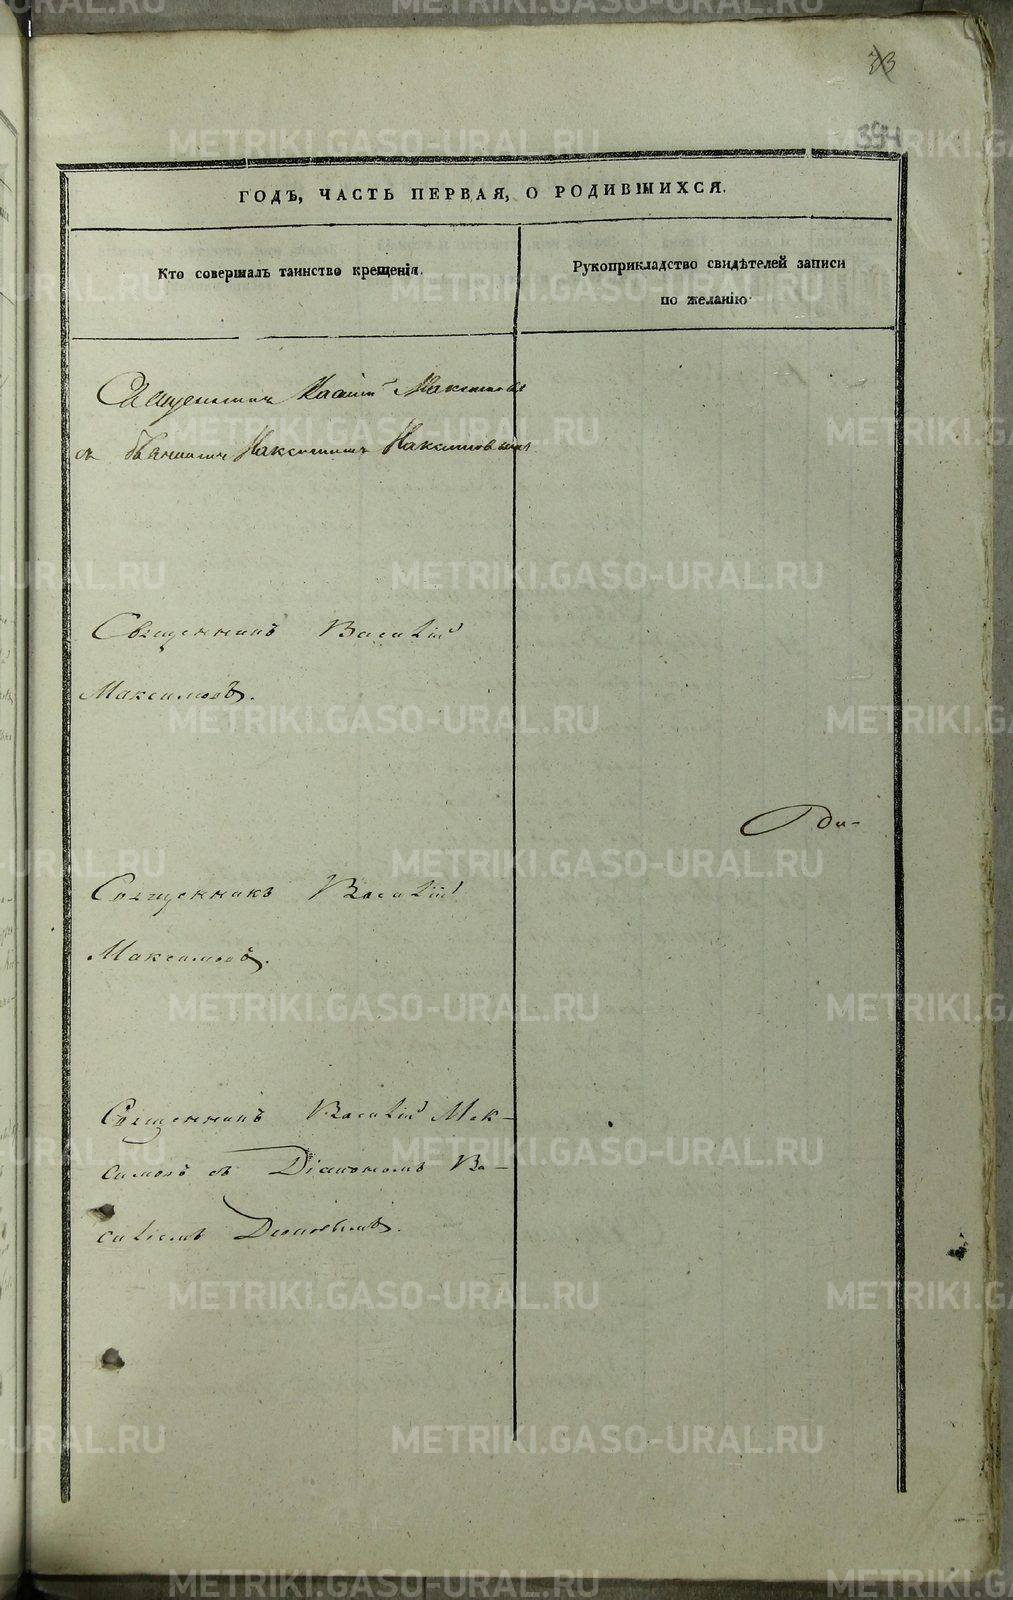 33
394
ГОДЪ, ЧАСТЬ ПЕРВАЯ, О РОДИВШИХСЯ.
Кто совершалъ таинство крещенія.
Рукоприкладство свидѣтелей записи
по желанію
Священникъ Максимовъ
съ Максимомъ
Священникъ Василій
Максимовъ.
Священникъ Василій
Максимовъ.
Священникъ Василій Мак-
симовъ съ Діакономъ Ва-
силіемъ
METRIKI.GASO-URAL.RU